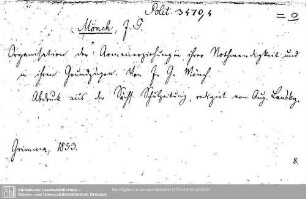 Polit. 3479,4
= 2
Mönch. J. G.
Organisation der Armenerziehung in ihrer Nothwendigkeit und
in ihren Grundzügen. Von J. G. Mönch.
Abdruck aus der Sächs. Schulzeitung, redigirt von Aug. Lansky.
Grimma, 1853.
8.
Sächsische Landesbibliothek -
Staats- und Universitätsbibliothek Dresden